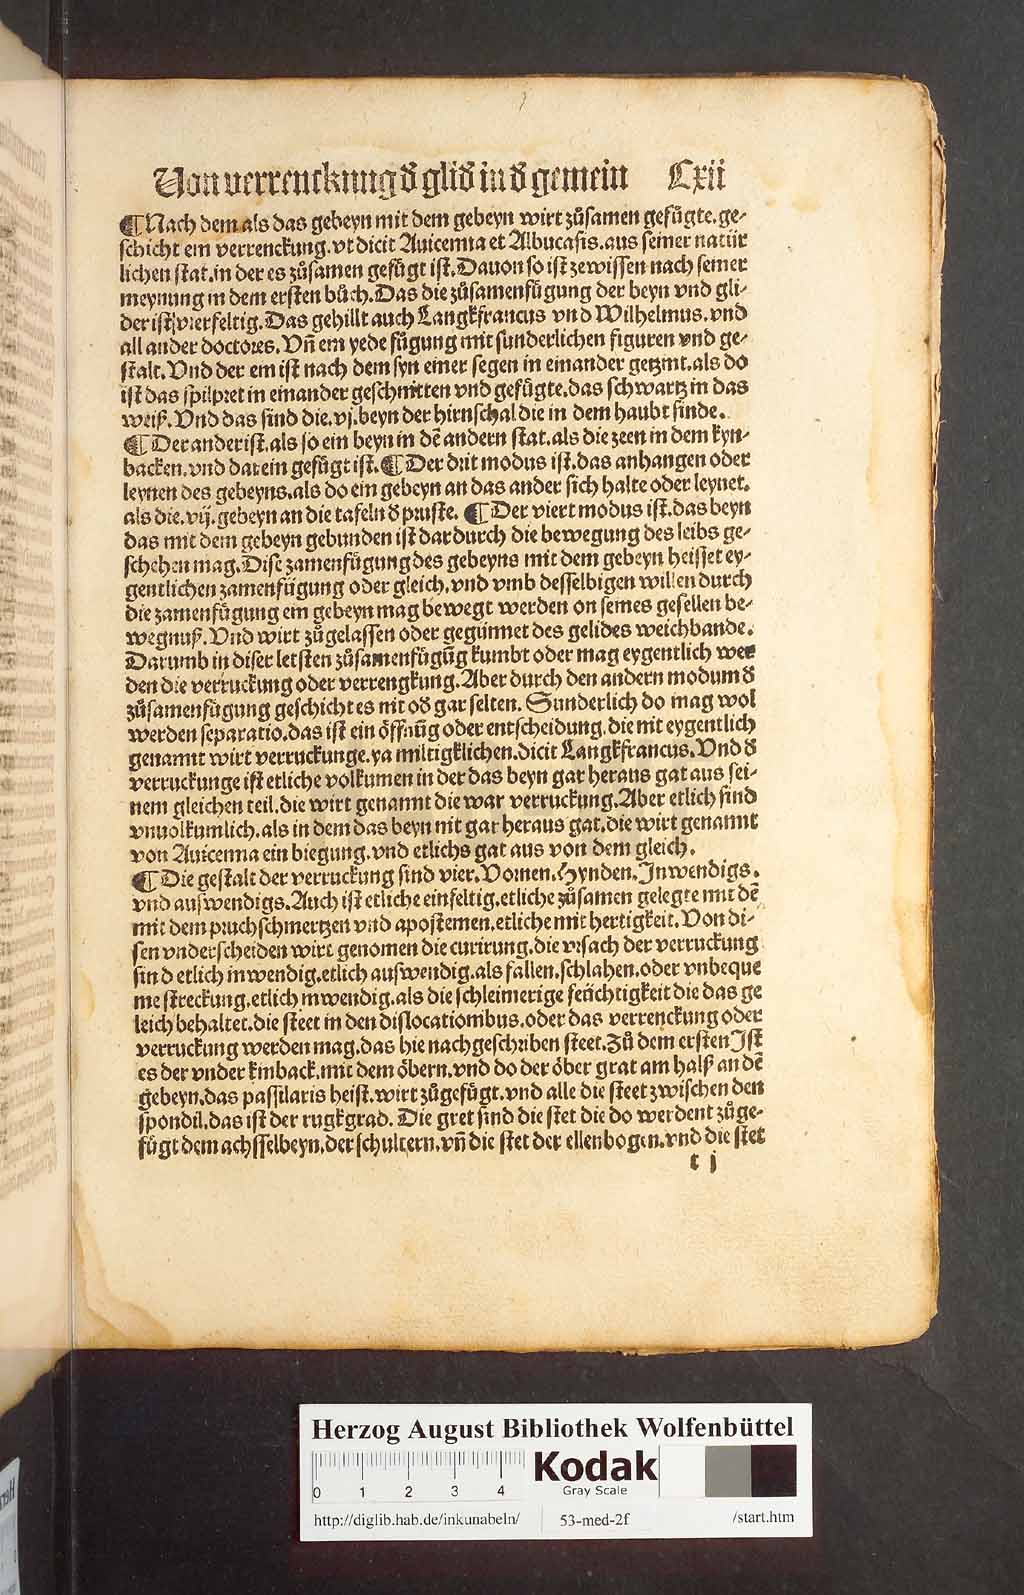 Von verrenckung ð glið in ð gemein Cxii
¶ Nach dem als das gebeyn mit dem gebeyn wirt zůsamen gefügte. ge-
schicht ein verrenckung. vt dicit Auicenna et Albucasis. aus seiner natür
lichen stat. in der es zůsamen gefügt ist. Dauon so ist zewissen nach seiner
meynung in dem ersten bůch. Das die zůsamenfügung der beyn vnd gli-
der ist vierfeltig. Das gehillt auch Langkfrancus vnd Wilhelmus. vnd
all ander doctores. Vñ ein yede fügung mit sunderlichen figuren vnd ge-
stalt. Vnd der ein ist nach dem syn einer segen in einander getzint. als do
ist das spilpret in einander geschnitten vnd gefügte. das schwartz in das
weiß. Vnd das sind die. vj. beyn der hirnschal die in dem haubt sinde.
¶ Der ander ist. als so ein beyn in dē andern stat. als die zeen in dem kyn-
backen. vnd darein gefügt ist. ¶ Der drit modus ist. das anhangen oder
leynen des gebeyns. als do ein gebeyn an das ander sich halte oder leynet.
als die. vij. gebeyn an die tafeln ð pruste. ¶ Der viert modus ist. das beyn
das mit dem gebeyn gebunden ist dardurch die bewegung des leibs ge-
schehen mag. Dise zamenfügung des gebeyns mit dem gebeyn heisset ey-
gentlichen zamenfügung oder gleich. vnd vmb desselbigen willen durch
die zamenfügung ein gebeyn mag bewegt werden on seines gesellen be-
wegnuß. Vnd wirt zůgelassen oder gegünnet des gelides weichbande.
Darumb in diser letsten zůsamenfügūg kumbt oder mag eygentlich wer
den die verruckung oder verrengkung. Aber durch den andern modum ð
zůsamenfügung geschicht es nit oð gar selten. Sunderlich do mag wol
werden separatio. das ist ein öffnūg oder entscheidung. die nit eygentlich
genannt wirt verruckunge. ya miltigklichen. dicit Langkfrancus. Vnd ð
verruckunge ist etliche volkumen in der das beyn gar heraus gat aus sei-
nem gleichen teil. die wirt genannt die war verruckung. Aber etlich sind
vnuolkumlich. als in dem das beyn nit gar heraus gat. die wirt genannt
von Auicenna ein biegung. vnd etlichs gat aus von dem gleich.
¶ Die gestalt der verruckung sind vier. Vornen. Hynden. Inwendigs.
vnd auswendigs. Auch ist etliche einfeltig. etliche zůsamen gelegte mit dē
mit dem pruch schmertzen vnd apostemen. etliche mit hertigkeit. Von di-
sen vnderscheiden wirt genomen die curirung. die vrsach der verruckung
sind etlich inwendig. etlich auswendig. als fallen. schlahen. oder vnbeque
me streckung. etlich inwendig. als die schleimerige feüchtigkeit die das ge
leich behaltet. die steet in den dislocationibus. oder das verrenckung oder
verruckung werden mag. das hie nach geschriben steet. Zů dem ersten Ist
es der vnder kinback. mit dem öbern. vnd do der öber grat am halß an dē
gebeyn. das passilaris heist. wirt zůgefügt. vnd alle die steet zwischen den
spondil. das ist der rugkgrad. Die gret sind die stet die do werdent zůge-
fügt dem achsselbeyn. der schultern. vñ die stet der ellenbogen. vnd die stet
t j
Herzog August Bibliothek Wolfenbüttel
0 1 2 3 4
Kodak
Gray Scale
http://diglib.hab.de/inkunabeln/ 53-med-2f /start.htm